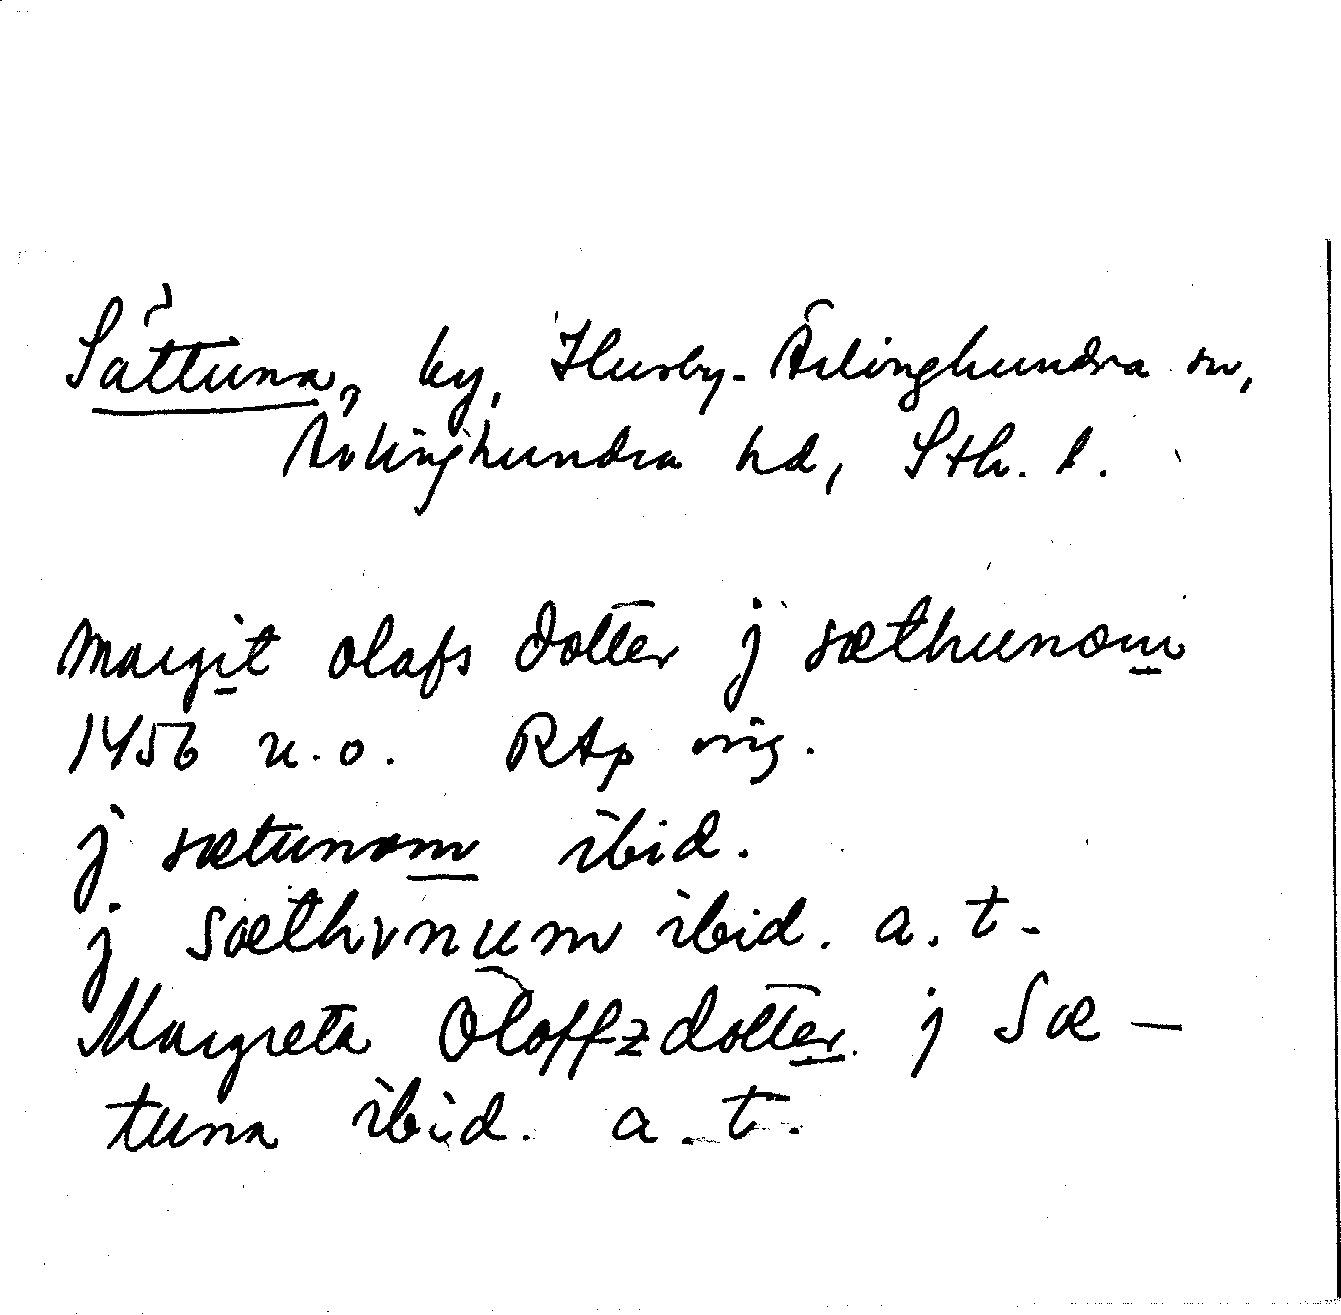 Såttuna, by, Husby-Ärlinghundra sn,
Ärlinghundra hd, Sth. l.
Margit olafs dotter j sæthunom
1456 u.o. RAp orig.
j sætunom ibid.
j Sæthvnum ibid. a. t.
Margreta Oloffzdotter j Sæ-
tuna ibid. a. t.